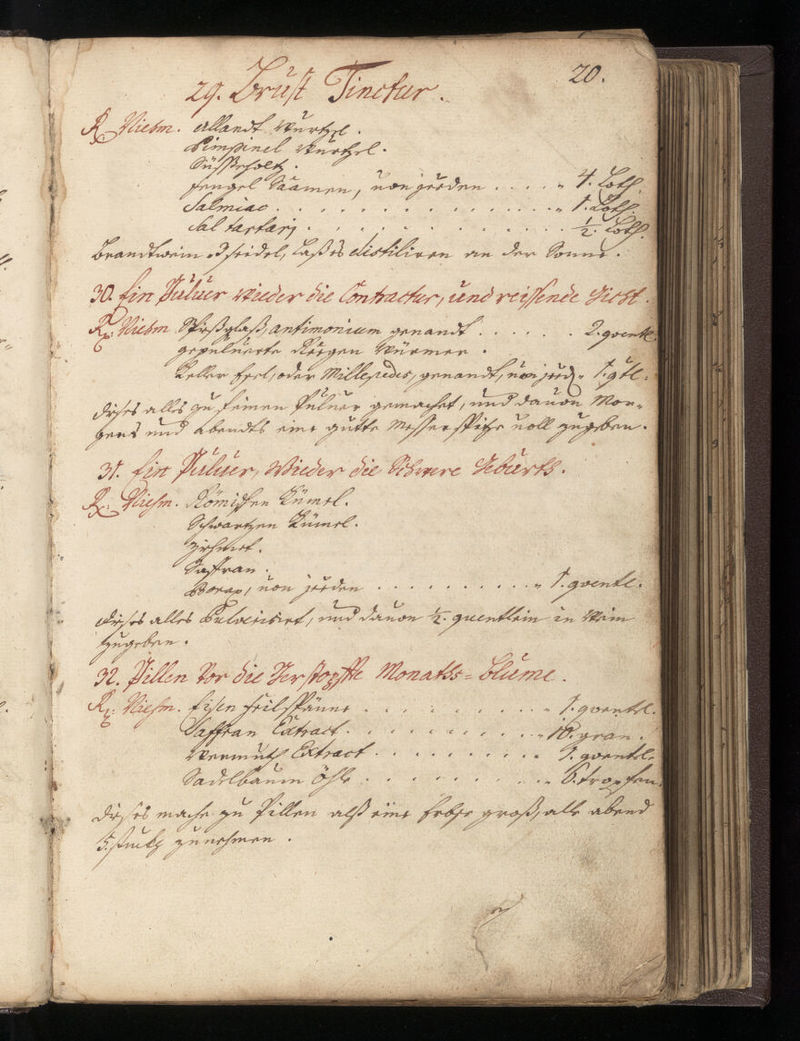 20.
29. Brust Tinctur.
Rx. Niehm. Allandt Wurtzel.
Pimpinel Wurtzel.
Süssholtz.
fengel Saamen, von jeden . . . . " 4. Loth.
Salmiac . . . . . . . . . . . . " 1. Loth.
Sal tartarj . . . . . . . . . . . . ½. Loth.
Brandtwein 3 seidel, lass es distiliren an der Sonne.
30. Ein Pulver wieder die Contractur, und reissende Gicht.
Rx: Niehm Spissglass, antimonium genandt . . . . . . 2. quentl.
gepulverte Regen Würmer.
Keller Esel, oder Millepedes, genandt, von jed: " 1. qtl:
dieses alles zu feinen Pulver gemachet, und davon Mor=
gens und Abendts eine gutte Messerspitze voll zugeben.
31. Ein Pulver, Wieder die Schwere Geburth.
Rx: Niehm. Römischen Kümel.
Schwartzen Kümel.
Zihmet.
Saffran.
Borax, von jeden . . . . . . . . . . " 1. quentl.
dieses alles Pulverisirt, und davon ½. quentlein in Wein
Zugeben.
32. Pillen Vor die Verstopffte Monaths=Blume.
Rx: Niehm. Eisen feilspänne . . . . . . . . . . " 1. quentl.
Saffran Extract . . . . . . . . . . " 18. gran.
Wermuth Extract . . . . . . . . . " 1. quentl.
Sadelbaum Öhle . . . . . . . . . . " 6. tropfen.
dieses mache zu Pillen alss eine Erbse gross, alle abend
5. stuckh zunehmen.